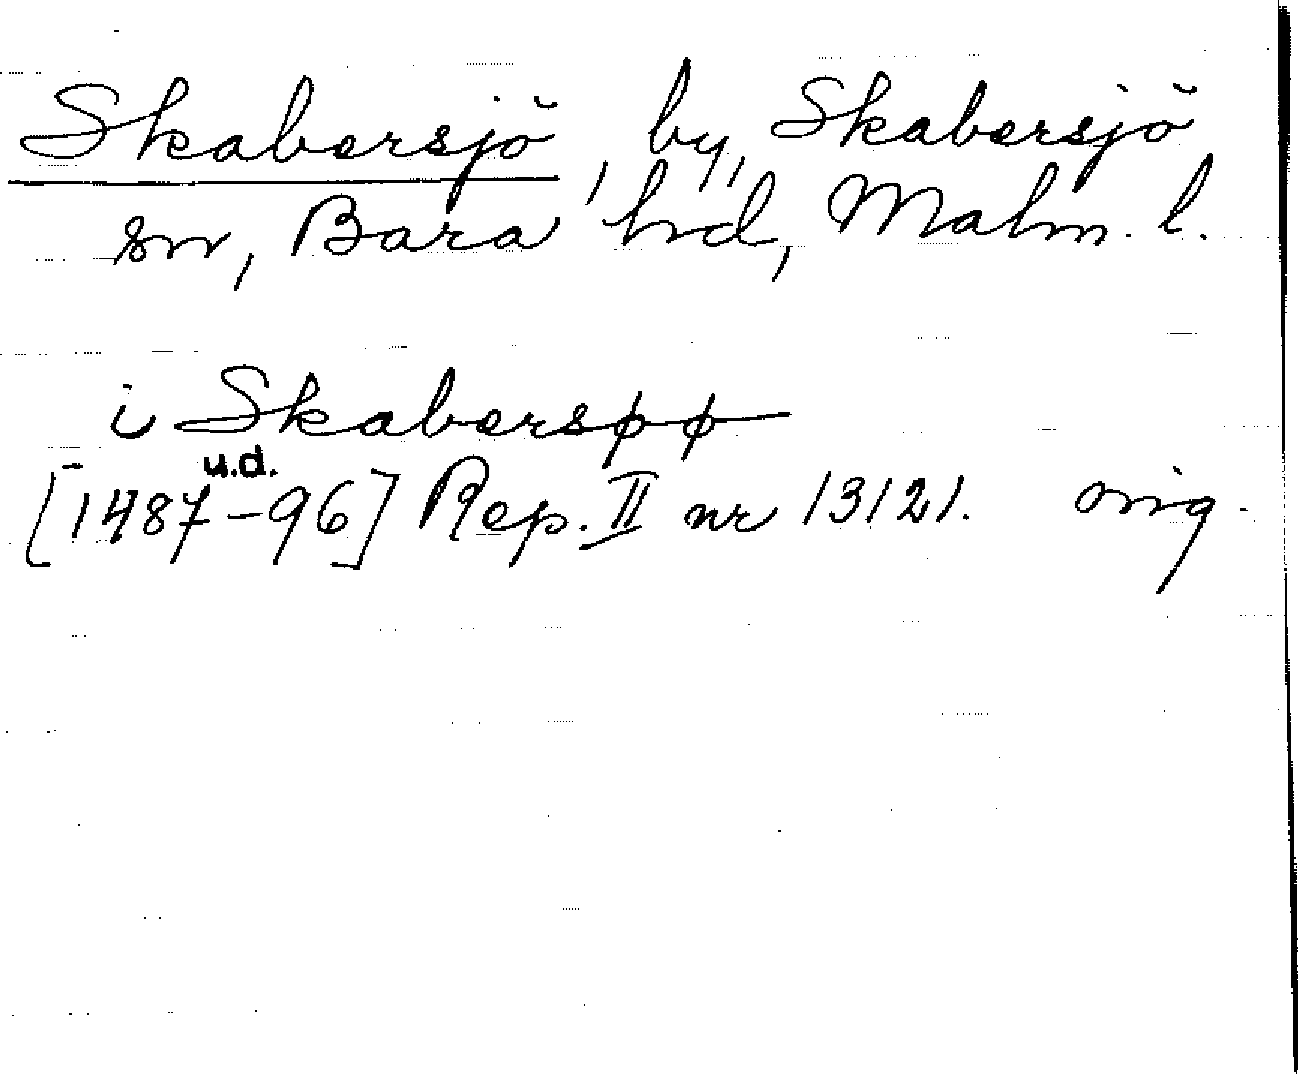 Skabersjö, by, Skabersjö
sn, Bara hd, Malm. l.
i Skabersøø
u.d.
[1487-96] Rep. II nr 13121. orig.